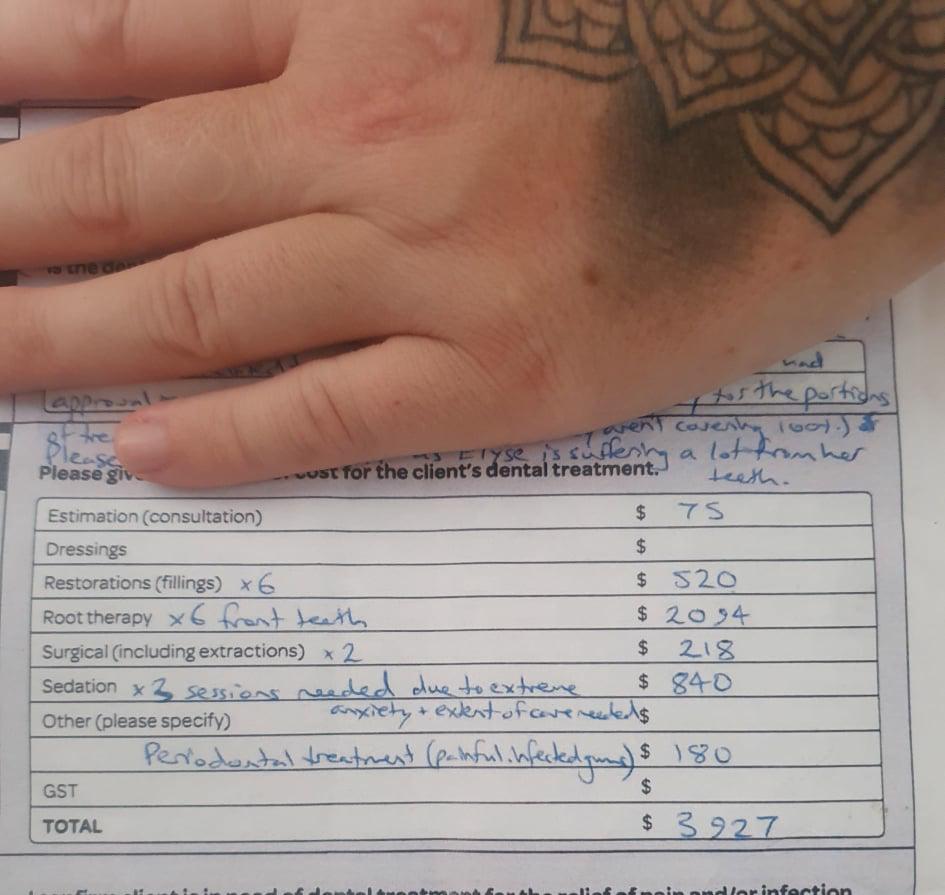 is the
had
approval for the portions
of aren't covering 100%.)
Please as Elyse is suffering a lot from her
Please cost for the client's dental treatment. teeth.
Estimation (consultation) $ 75
Dressings $
Restorations (fillings) x6 $ 520
Root therapy x6 front teeth $ 2094
Surgical (including extractions) x2 $ 218
Sedation x3 sessions needed due to extreme $ 840
anxiety + extent of care needed
Other (please specify) $
Periodontal treatment (painful, infected gums) $ 180
GST $
TOTAL $ 3927
client is in need of dental treatment for the relief of pain and/or infection